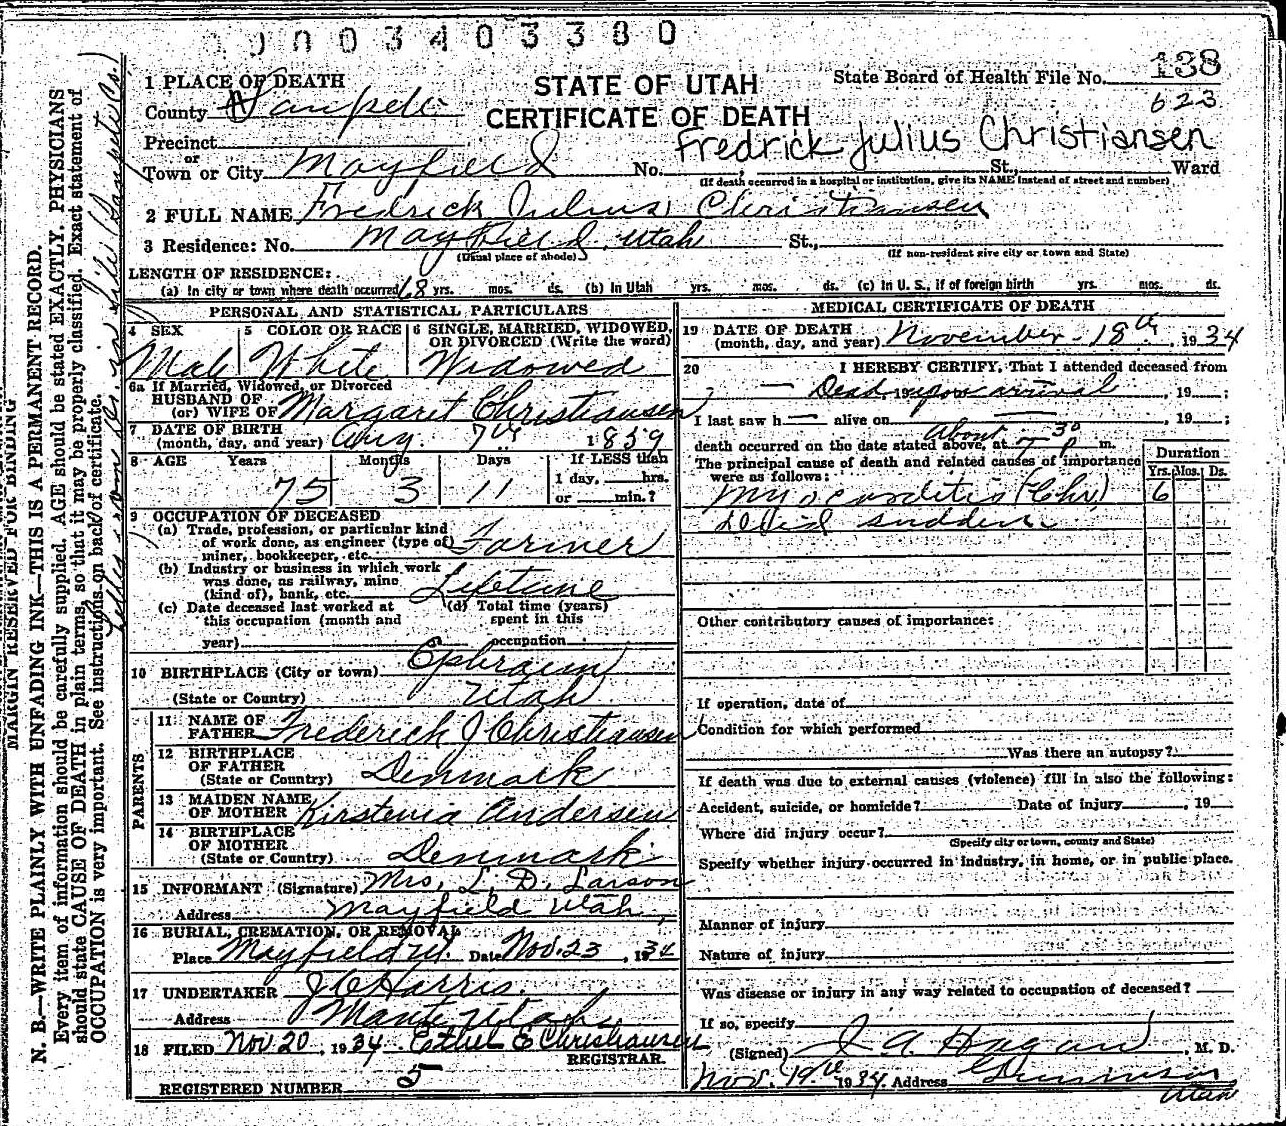 00003403380
1 PLACE OF DEATH
STATE OF UTAH
CERTIFICATE OF DEATH
State Board of Health File No. 138
623
County Sanpete
Precinct
or
Town or City Mayfield No. St., Ward
Fredrick Julius Christiansen
(If death occurred in a hospital or institution, give its NAME instead of street and number)
2 FULL NAME Fredrick Julius Christiansen
3 Residence: No. Mayfield, Utah St.,
(Usual place of abode) (If non-resident give city or town and State)
LENGTH OF RESIDENCE:
(a) In city or town where death occurred 68 yrs. mos. ds. (b) In Utah yrs. mos. ds. (c) In U. S., if of foreign birth yrs. mos. ds.
PERSONAL AND STATISTICAL PARTICULARS
4 SEX Male
5 COLOR OR RACE White
6 SINGLE, MARRIED, WIDOWED, OR DIVORCED (Write the word) Widowed
6a If Married, Widowed, or Divorced
HUSBAND OF
(or) WIFE OF Margaret Christiansen
7 DATE OF BIRTH
(month, day, and year) Aug. 7th 1859
8 AGE Years Months Days If LESS than
75 3 11 1 day, hrs.
or min.?
9 OCCUPATION OF DECEASED
(a) Trade, profession, or particular kind
of work done, as engineer (type of)
miner, bookkeeper, etc. Farmer
(b) Industry or business in which work
was done, as railway, mine
(kind of), bank, etc. Lifetime
(c) Date deceased last worked at
this occupation (month and
year)
(d) Total time (years)
spent in this
occupation
10 BIRTHPLACE (City or town) Ephraim
(State or Country) Utah
PARENTS
11 NAME OF
FATHER Frederick J Christiansen
12 BIRTHPLACE
OF FATHER
(State or Country) Denmark
13 MAIDEN NAME
OF MOTHER Kirstenia Andersen
14 BIRTHPLACE
OF MOTHER
(State or Country) Denmark
15 INFORMANT (Signature) Mrs. L. D. Larson
Address Mayfield Utah,
16 BURIAL, CREMATION, OR REMOVAL
Place Mayfield Ut. Date Nov. 23, 1934
17 UNDERTAKER J C Harris.
Address Manti Utah
18 FILED Nov 20, 1934 Esther E Christiansen
REGISTRAR.
REGISTERED NUMBER 5
MEDICAL CERTIFICATE OF DEATH
19 DATE OF DEATH
(month, day, and year) November - 18th, 1934
20 I HEREBY CERTIFY, That I attended deceased from
— Dead 19 upon arrival, 19 — ;
I last saw h — alive on —, 19 — ;
death occurred on the date stated above, at About 7 30 P m.
The principal cause of death and related causes of importance
were as follows:
Duration
Yrs. Mos. Ds.
Myocarditis (Chr) 6
Died sudden
Other contributory causes of importance:
If operation, date of
Condition for which performed
Was there an autopsy?
If death was due to external causes (violence) fill in also the following:
Accident, suicide, or homicide? Date of injury, 19
Where did injury occur?
(Specify city or town, county and State)
Specify whether injury occurred in industry, in home, or in public place.
Manner of injury
Nature of injury
Was disease or injury in any way related to occupation of deceased? —
If so, specify
(Signed) J. A. Hagan, M. D.
Nov. 19th 1934 Address Gunnison
Utah
MARGIN RESERVED FOR BINDING
N. B.—WRITE PLAINLY WITH UNFADING INK—THIS IS A PERMANENT RECORD.
Every item of information should be carefully supplied. AGE should be stated EXACTLY. PHYSICIANS
should state CAUSE OF DEATH in plain terms, so that it may be properly classified. Exact statement of
OCCUPATION is very important. See instructions on back of certificate.